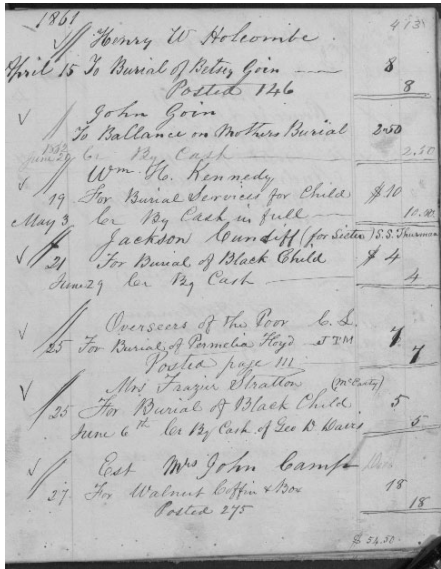 1861
413
Henry W Holcombe
April 15 To Burial of Betsey Goin 8
Posted 146 8
John Goin
To Ballance on Mothers Burial 2.50
June 29 Cr By Cash 2.50
Wm. H. Kennedy
19 For Burial Services for Child $10
May 3 Cr By Cash in full 10.00
Jackson Cundiff (for Sister) S.S. Thurman
21 For Burial of Black Child $4
June 29 Cr By Cash 4
Overseers of the Poor C. L.
25 For Burial of Permelia Floyd JTM 7
Posted page 111 7
Mrs Frazier Stratton (McCarty)
25 For Burial of Black Child 5
June 6th Cr By Cash of Geo D Davis 5
Est Mrs John Camp
27 For Walnut Coffin & Box 18
Posted 275 18
$ 54.50